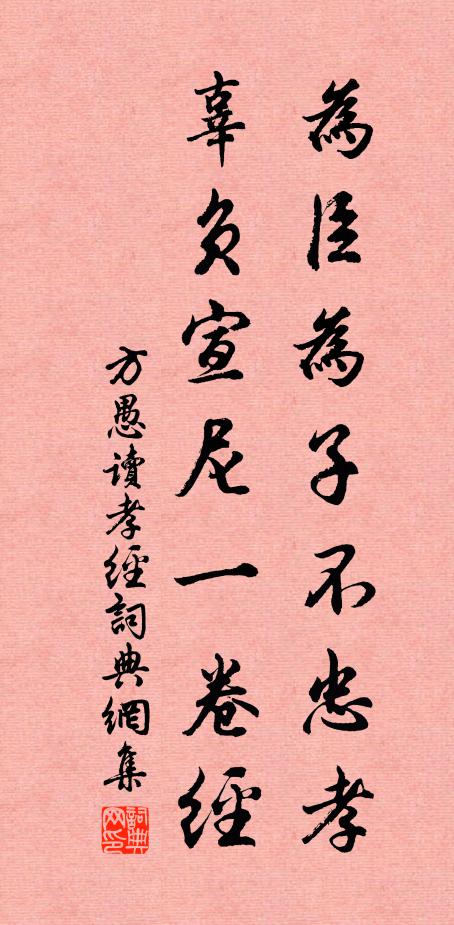 為臣為子不忠孝
辜負宣尼一卷經
方愚讀孝經詞典網集
詞典网印